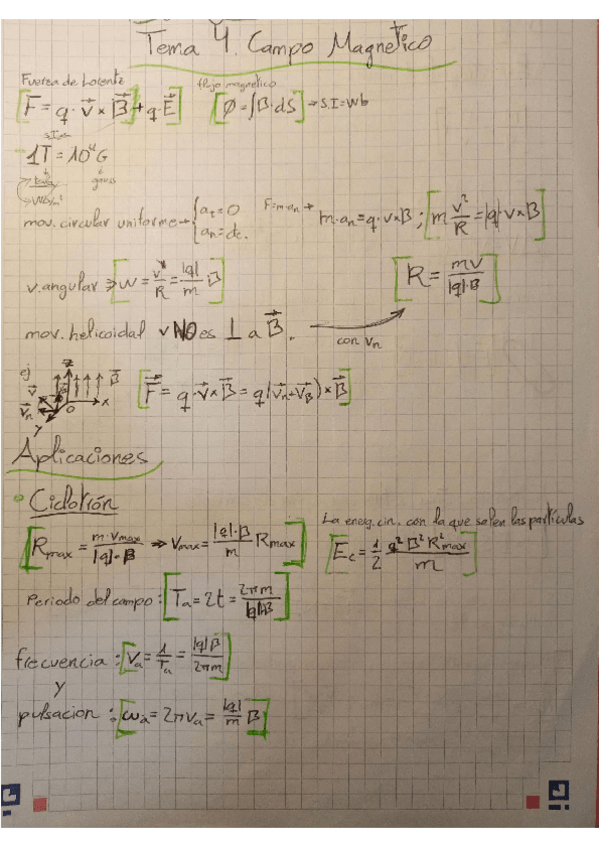 Tema 4. Campo Magnetico
Fuerza de Lorentz
flujo magnetico
[F⃗ = q · v⃗ × B⃗] + q · E⃗] [Ø = ∫B · dS] → S.I = Wb
S.I
1T = 10⁴ G
gauss
Wb/m²
mov. circular uniforme → { aₜ = 0
aₙ = cte.
F = m·aₙ → m·aₙ = q·v×B ; [m v²/R = |q|·v×B]
v. angular ⇒ [w = v/R = |q|/m B]
[R = mv/|q|·B]
mov. helicoidal v NO es ⊥ a B⃗.
con vₙ
ej
z
v⃗
B⃗
vₙ
O
x
y
[F⃗ = q·v⃗×B⃗ = q(v⃗ₙ+v⃗_B)×B⃗]
Aplicaciones
Ciclotrón
[R_max = m·v_max/|q|·B ⇒ V_max = |q|·B/m R_max]
La energ. cin. con la que salen las partículas
[E_c = 1/2 q² B² R²_max/m]
Periodo del campo: [Tₐ = 2t = 2πm/|q|B]
frecuencia : [Vₐ = 1/Tₐ = |q|B/2πm]
y
pulsacion : [ωₐ = 2πvₐ = |q|/m B]